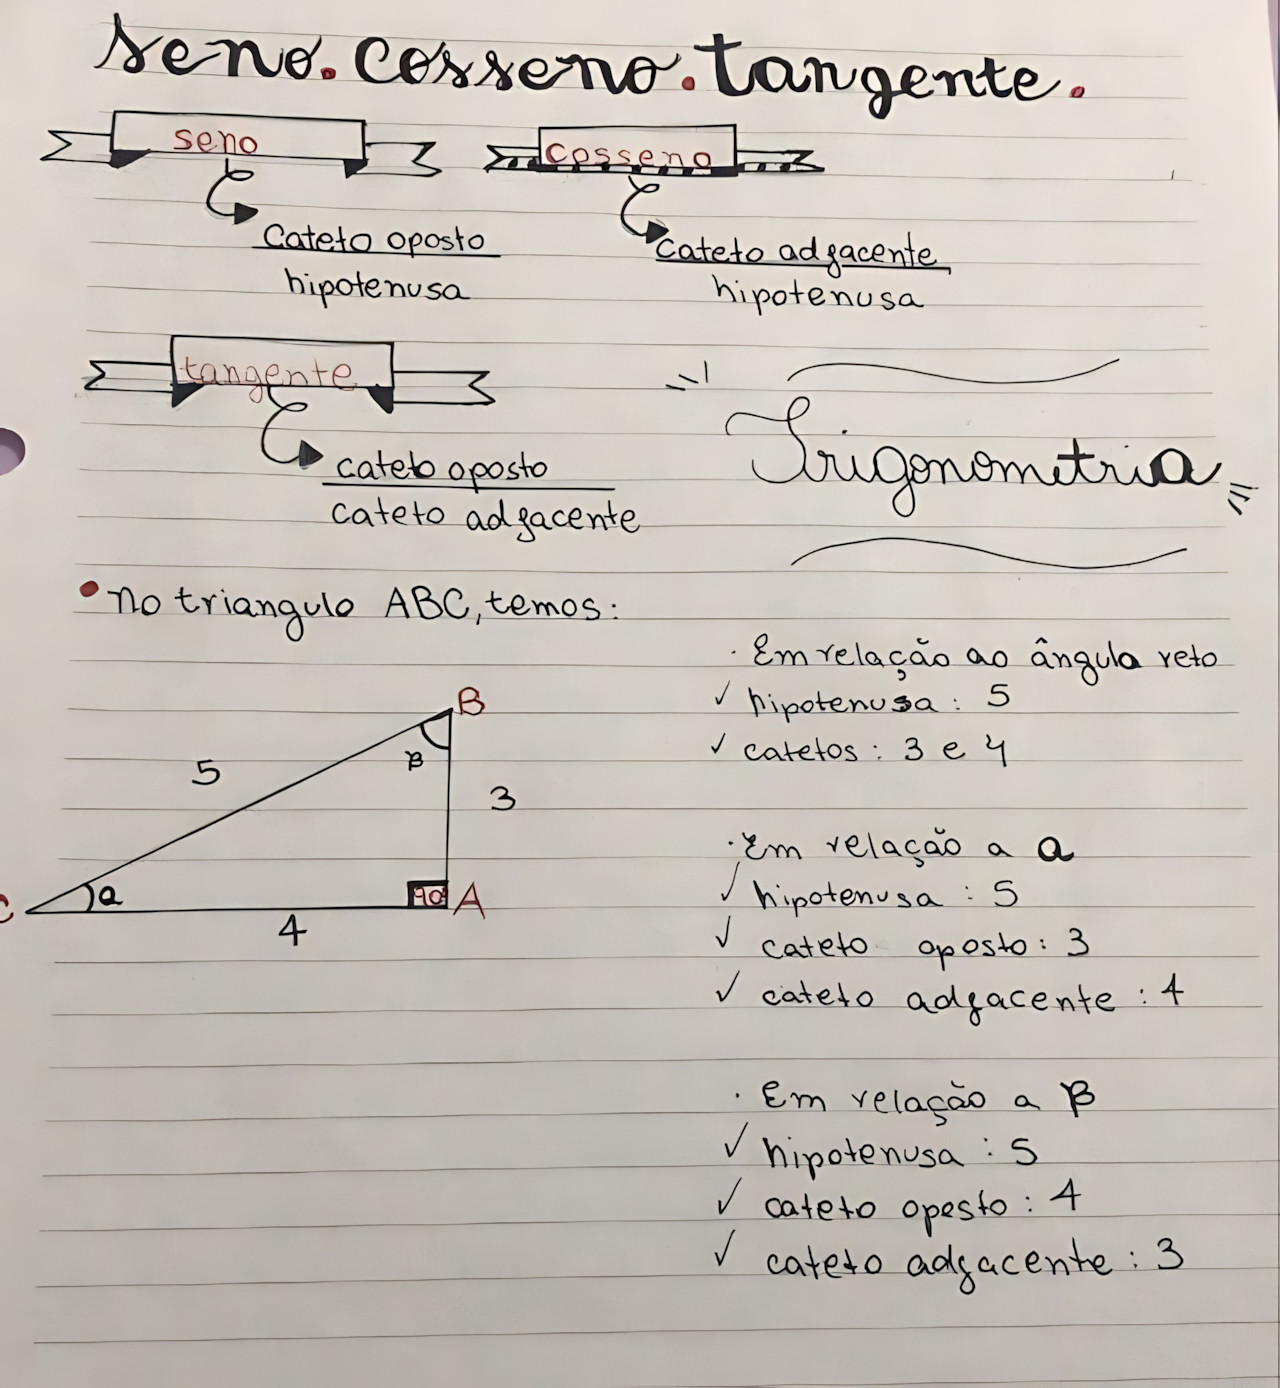 seno.cosseno.tangente.
seno
cosseno
cateto oposto
hipotenusa
cateto adjacente
hipotenusa
tangente
cateto oposto
cateto adjacente
Trigonometria
• no triangulo ABC, temos:
B
β
5
3
C
a
90°
A
4
· Em relação ao ângula reto
✓ hipotenusa: 5
✓ catetos: 3 e 4
· Em relação a a
✓ hipotenusa: 5
✓ cateto oposto: 3
✓ cateto adjacente: 4
· Em relação a β
✓ hipotenusa: 5
✓ cateto oposto: 4
✓ cateto adjacente: 3